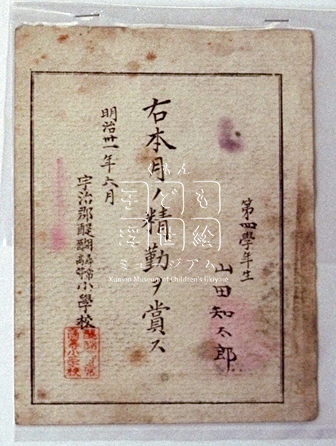 第四學年生
山田知太郎
右本月ノ精勤ヲ賞ス
明治卅一年六月
宇治郡醍醐尋常小學校
くもん
子ども
浮世絵
ミュージアム
Kumon Museum of Children's Ukiyoe